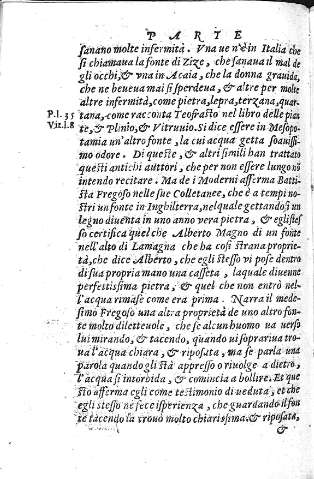 PARTE
sanano molte infermità. Vna ue n'è in Italia che
si chiamaua la fonte di Zize, che sanaua il mal de
gli occhi, & vna in Acaia, che la donna grauida,
che ne beueua mai si sperdeua, & altre per molte
altre infermità, come pietra, lepra, terzana, quar-
P.l. 35 tana, come racconta Teofrasto nel libro delle pian
Vit.l.8 te, & Plinio, & Vitruuio. Si dice essere in Mesopo-
tamia un'altro fonte, la cui acqua getta soauissi-
mo odore. Di queste, & altri simili han trattato
questi antichi auttori, che per non essere lungo nõ
intendo recitare. Ma de i Moderni afferma Batti-
sta Fregoso nelle sue Colletanee, che è a tempi no-
stri un fonte in Inghilterra, nel quale gettandosi un
legno diuenta in uno anno vera pietra, & egli stes-
so certifica quel che Alberto Magno di un fonte
nell'alto di Lamagna che ha cosi strana proprie-
tà, che dice Alberto, che egli stesso vi pose dentro
di sua propria mano una casseta, laquale diuenne
perfestissima pietra, & quel che non entrò nel-
l'acqua rimase come era prima. Narra il mede-
simo Fregoso una altra proprietà de uno altro fon-
te molto diletteuole, che se alcun huomo ua uerso
lui mirando, & tacendo, quando ui soprariua tro-
ua l'acqua chiara, & riposata, ma se parla una
parola quando gli stà appresso o riuolge a dietro,
l'acqua si intorbida, & comincia a bollire. Et que
sto afferma egli come testimonio di ueduta, et che
egli stesso ne fece isperienza, che guardando il fon-
te tacendo la trouò molto chiarissima & riposata,
&